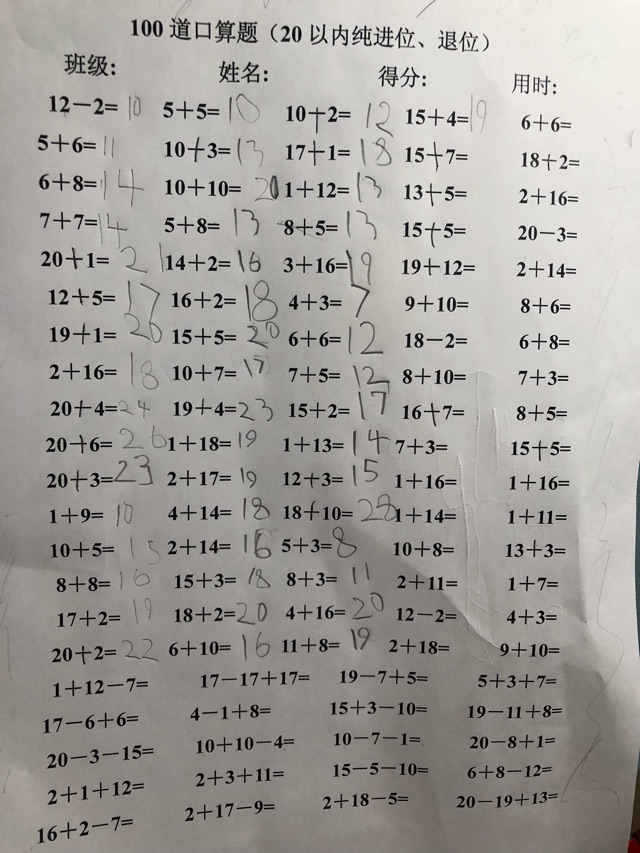 100 道口算题（20 以内纯进位、退位）
班级: 姓名: 得分: 用时:
12－2= 10 5＋5= 10 10＋2= 12 15＋4= 19 6＋6=
5＋6= 11 10＋3= 13 17＋1= 18 15＋7= 18＋2=
6＋8= 14 10＋10= 20 1＋12= 13 13＋5= 2＋16=
7＋7= 14 5＋8= 13 8＋5= 13 15＋5= 20－3=
20＋1= 21 14＋2= 16 3＋16= 19 19＋12= 2＋14=
12＋5= 17 16＋2= 18 4＋3= 7 9＋10= 8＋6=
19＋1= 20 15＋5= 20 6＋6= 12 18－2= 6＋8=
2＋16= 18 10＋7= 17 7＋5= 12 8＋10= 7＋3=
20＋4= 24 19＋4= 23 15＋2= 17 16＋7= 8＋5=
20＋6= 26 1＋18= 19 1＋13= 14 7＋3= 15＋5=
20＋3= 23 2＋17= 19 12＋3= 15 1＋16= 1＋16=
1＋9= 10 4＋14= 18 18＋10= 28 1＋14= 1＋11=
10＋5= 15 2＋14= 16 5＋3= 8 10＋8= 13＋3=
8＋8= 16 15＋3= 18 8＋3= 11 2＋11= 1＋7=
17＋2= 19 18＋2= 20 4＋16= 20 12－2= 4＋3=
20＋2= 22 6＋10= 16 11＋8= 19 2＋18= 9＋10=
1＋12－7= 17－17＋17= 19－7＋5= 5＋3＋7=
17－6＋6= 4－1＋8= 15＋3－10= 19－11＋8=
20－3－15= 10＋10－4= 10－7－1= 20－8＋1=
2＋1＋12= 2＋3＋11= 15－5－10= 6＋8－12=
16＋2－7= 2＋17－9= 2＋18－5= 20－19＋13=